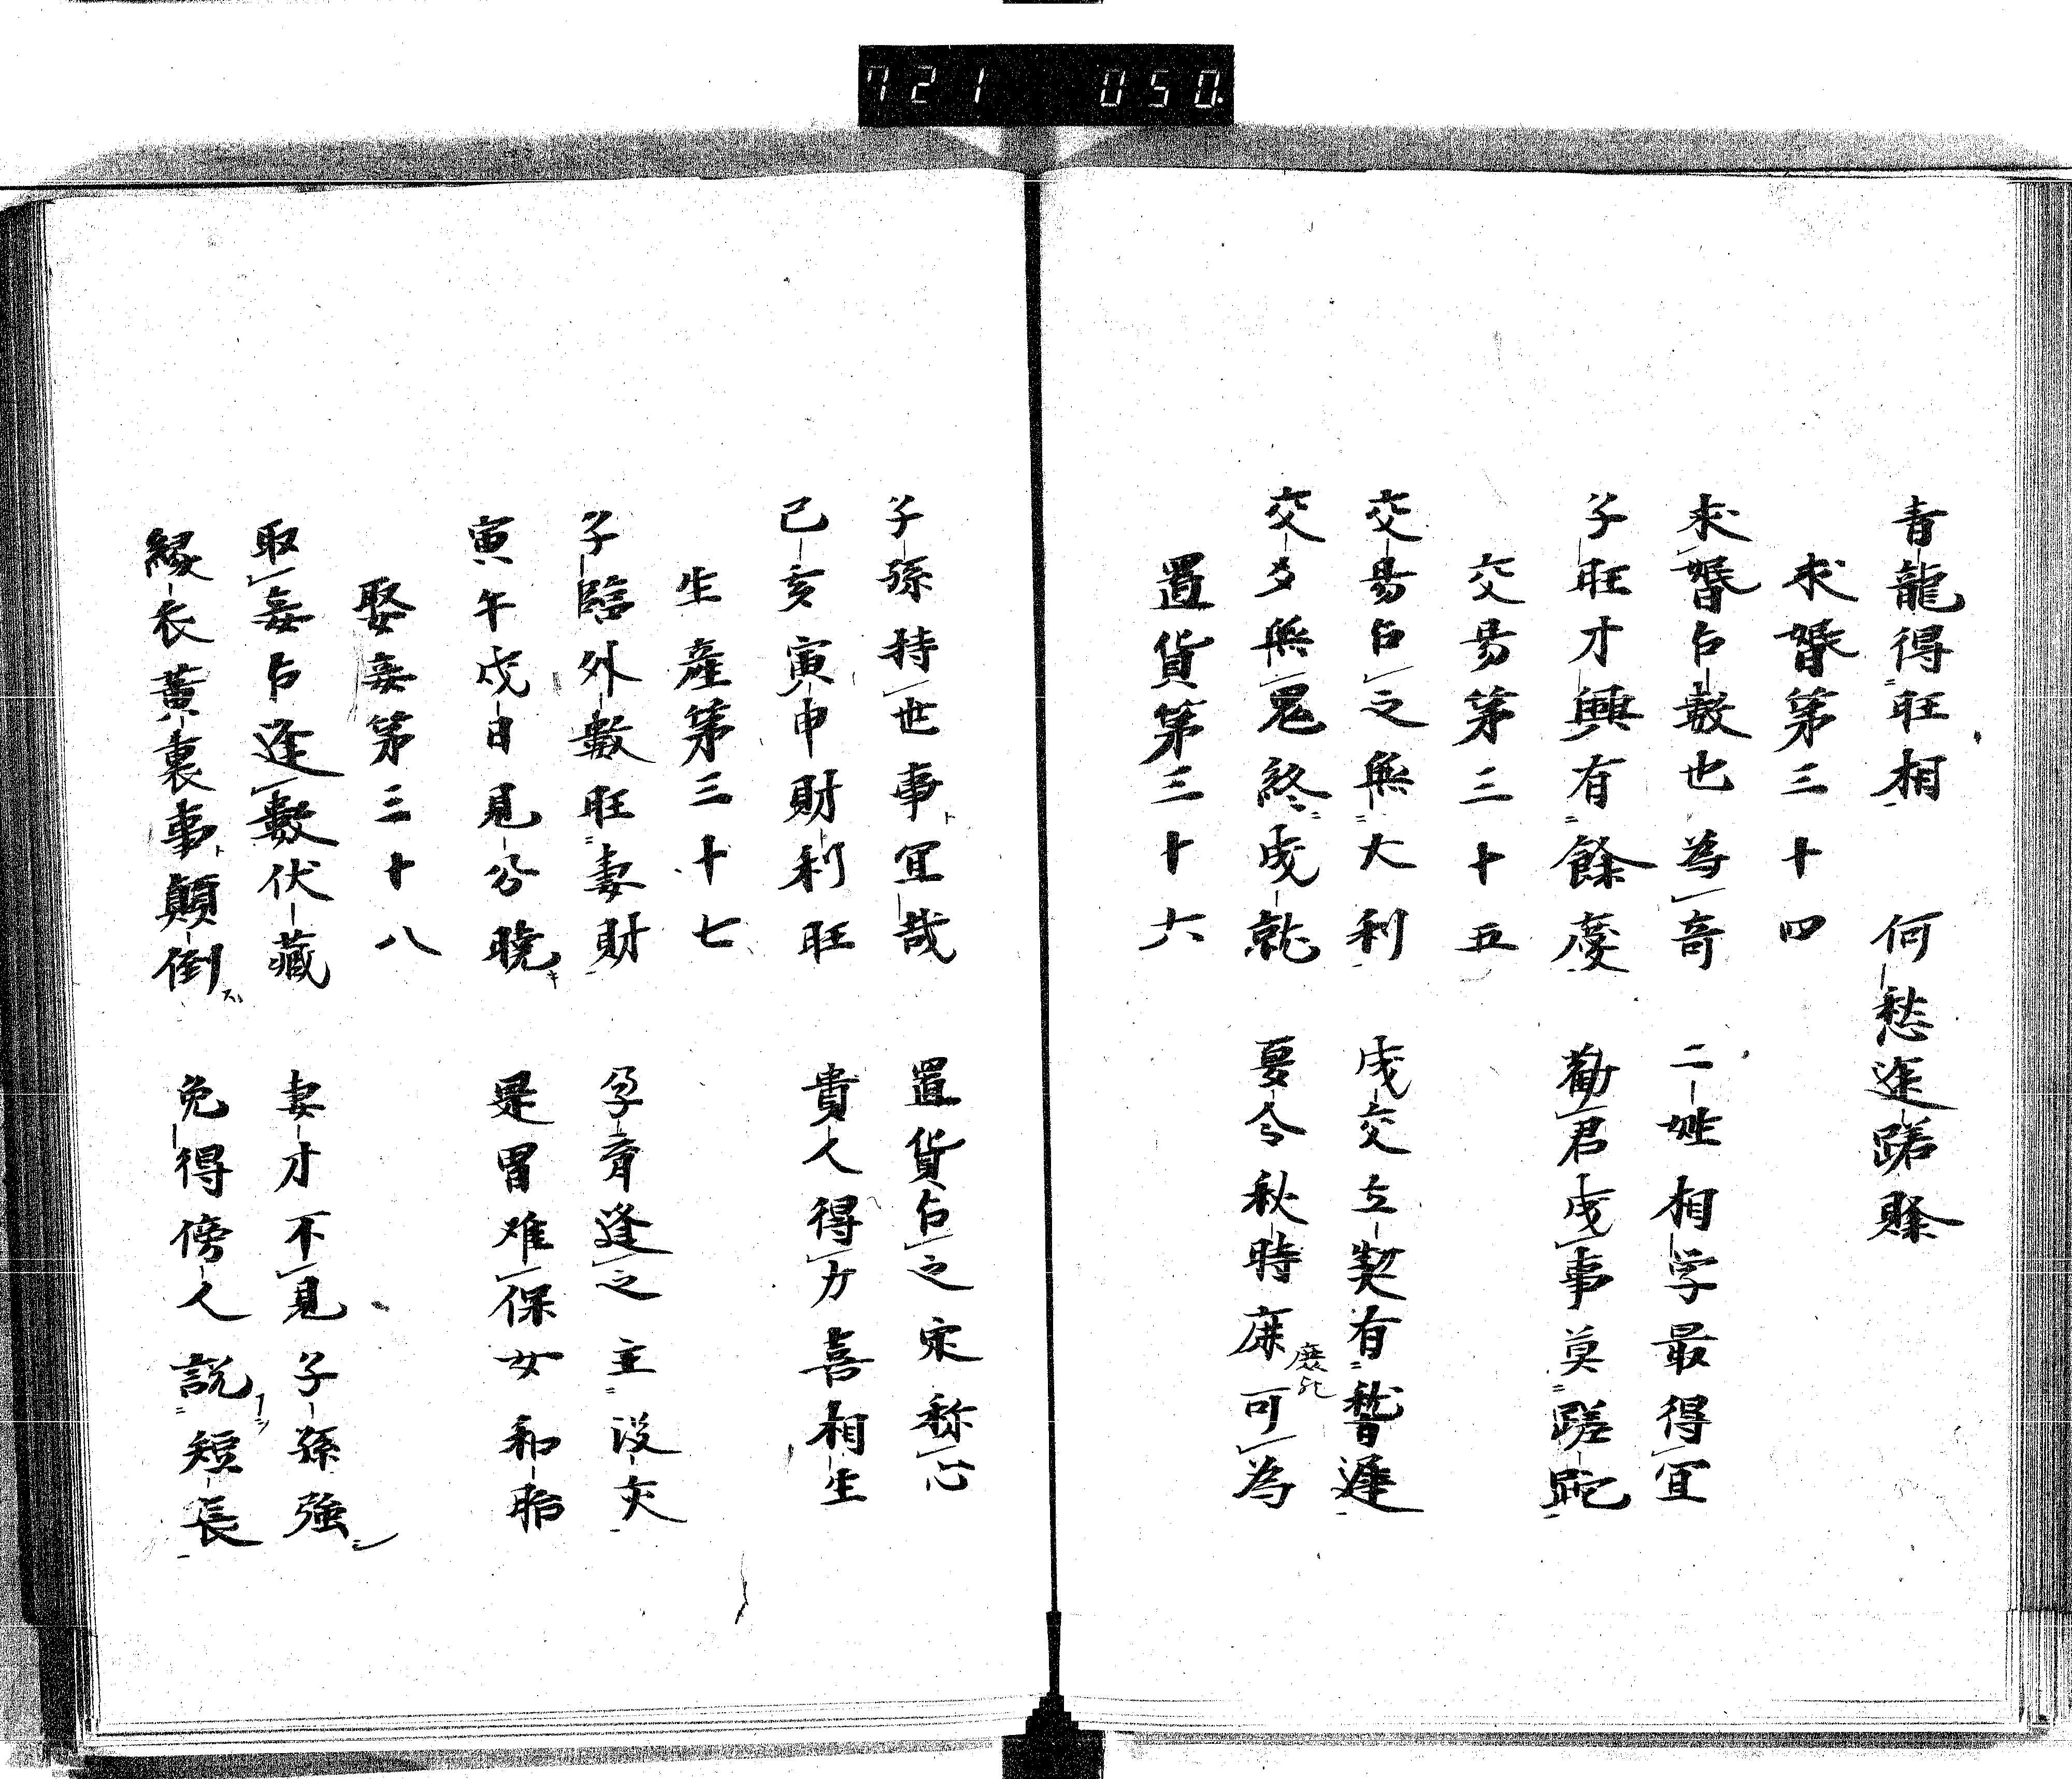 721 050
青龍得旺相 何愁進躇賖
求婚第三十四
求婚占數也為竒 二姓相学最得冝
子旺才興有餘慶 勸君成事莫蹉跎
交昜第三十五
交昜占之無大利 成交立契有稽遲
交夕無鬼終成就 要令秋時庶可為
置貨第三十六
子孫持世事冝哉 置貨占之宋称心
己亥寅申財利旺 貴人得力喜相生
生産第三十七
子臨外數旺妻財 孕育逢之主没灾
寅午戌日見分曉 是冐难保女和胎
娶妾第三十八
取妾占逢數伏藏 妻才不見子孫強
緑衣黃裏事顛倒 免得傍人説短長